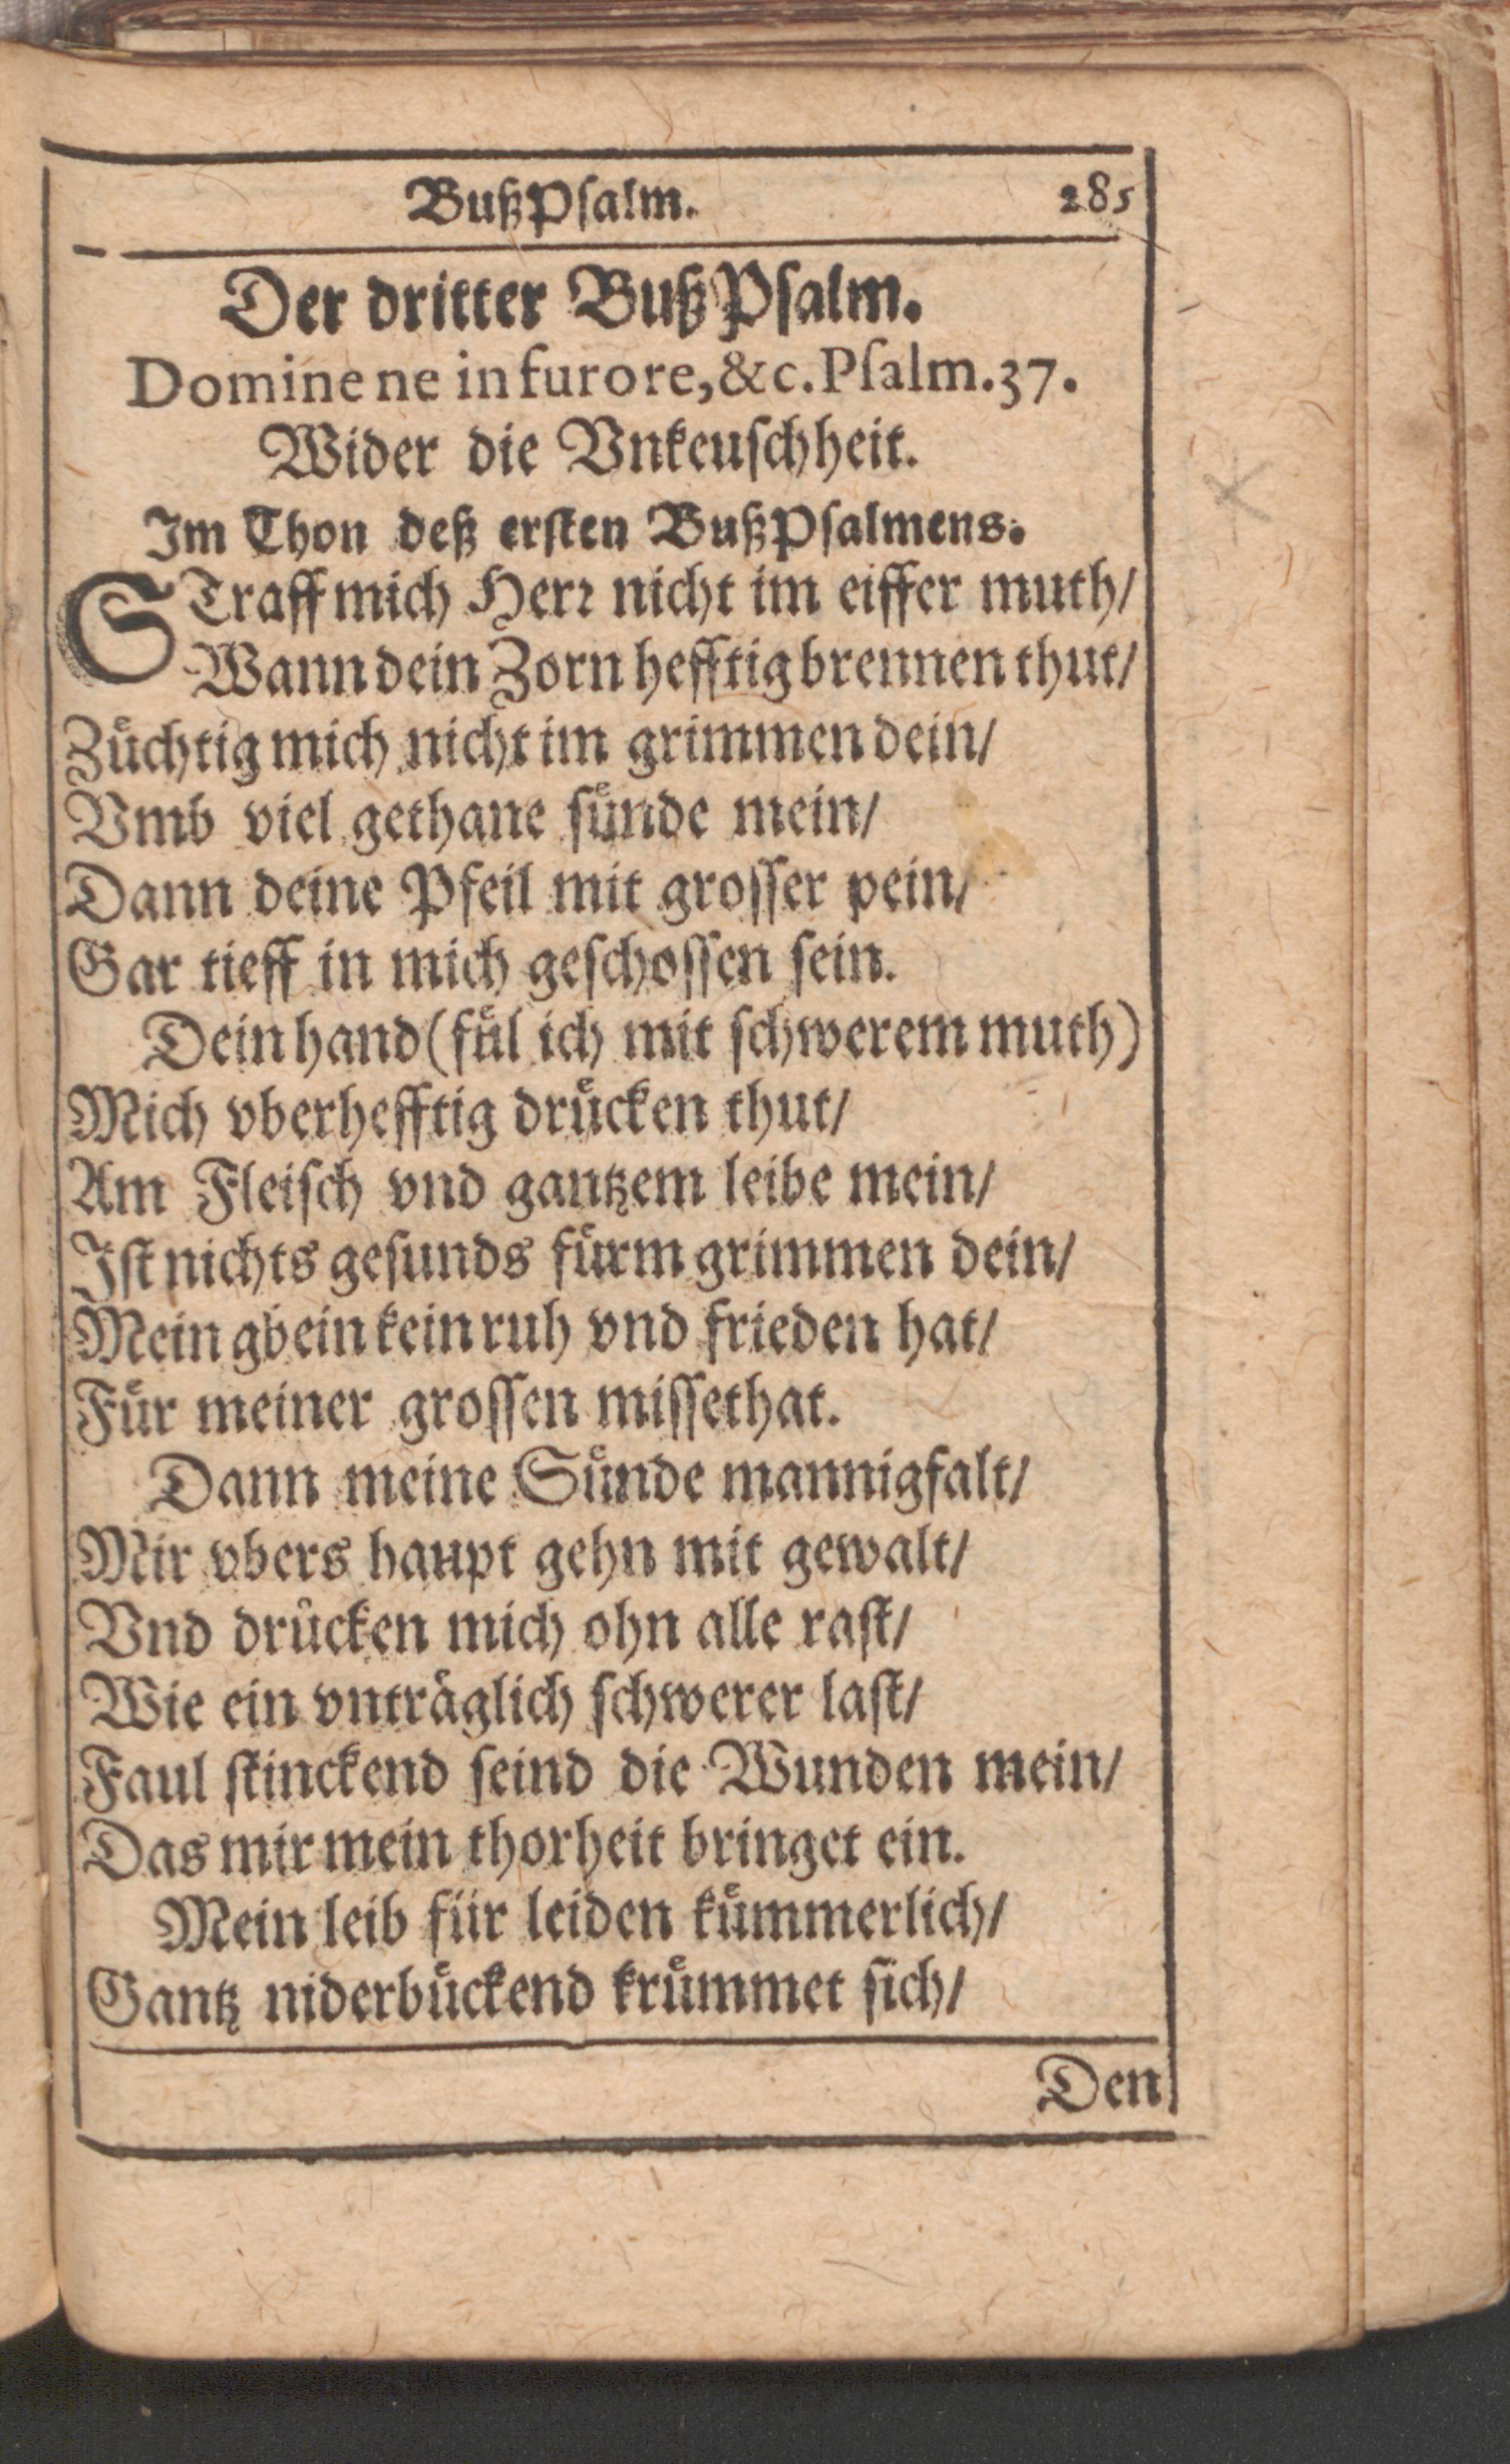 BußPſalm. 285
Der dritter BußPſalm.
Domine ne in furore, &c. Pſalm. 37.
Wider die Vnkeuſchheit.
Im Thon deß erſten BußPſalmens.
STraff mich Herꝛ nicht im eiffer muth/
Wann dein Zorn hefftig brennen thut/
Zuͤchtig mich nicht im grimmen dein/
Vmb viel gethane ſuͤnde mein/
Dann deine Pfeil mit groſſer pein/
Gar tieff in mich geſchoſſen ſein.
Dein hand (fuͤl ich mit ſchwerem muth)
Mich vberhefftig druͤcken thut/
Am Fleiſch vnd gantzem leibe mein/
Iſt nichts geſunds fuͤrm grimmen dein/
Mein gbein kein ruh vnd frieden hat/
Fuͤr meiner groſſen miſſethat.
Dann meine Suͤnde mannigfalt/
Mir vbers haupt gehn mit gewalt/
Vnd druͤcken mich ohn alle raſt/
Wie ein vntraͤglich ſchwerer laſt/
Faul ſtinckend ſeind die Wunden mein/
Das mir mein thorheit bringet ein.
Mein leib für leiden kuͤmmerlich/
Gantz niderbuͤckend kruͤmmet ſich/
Den